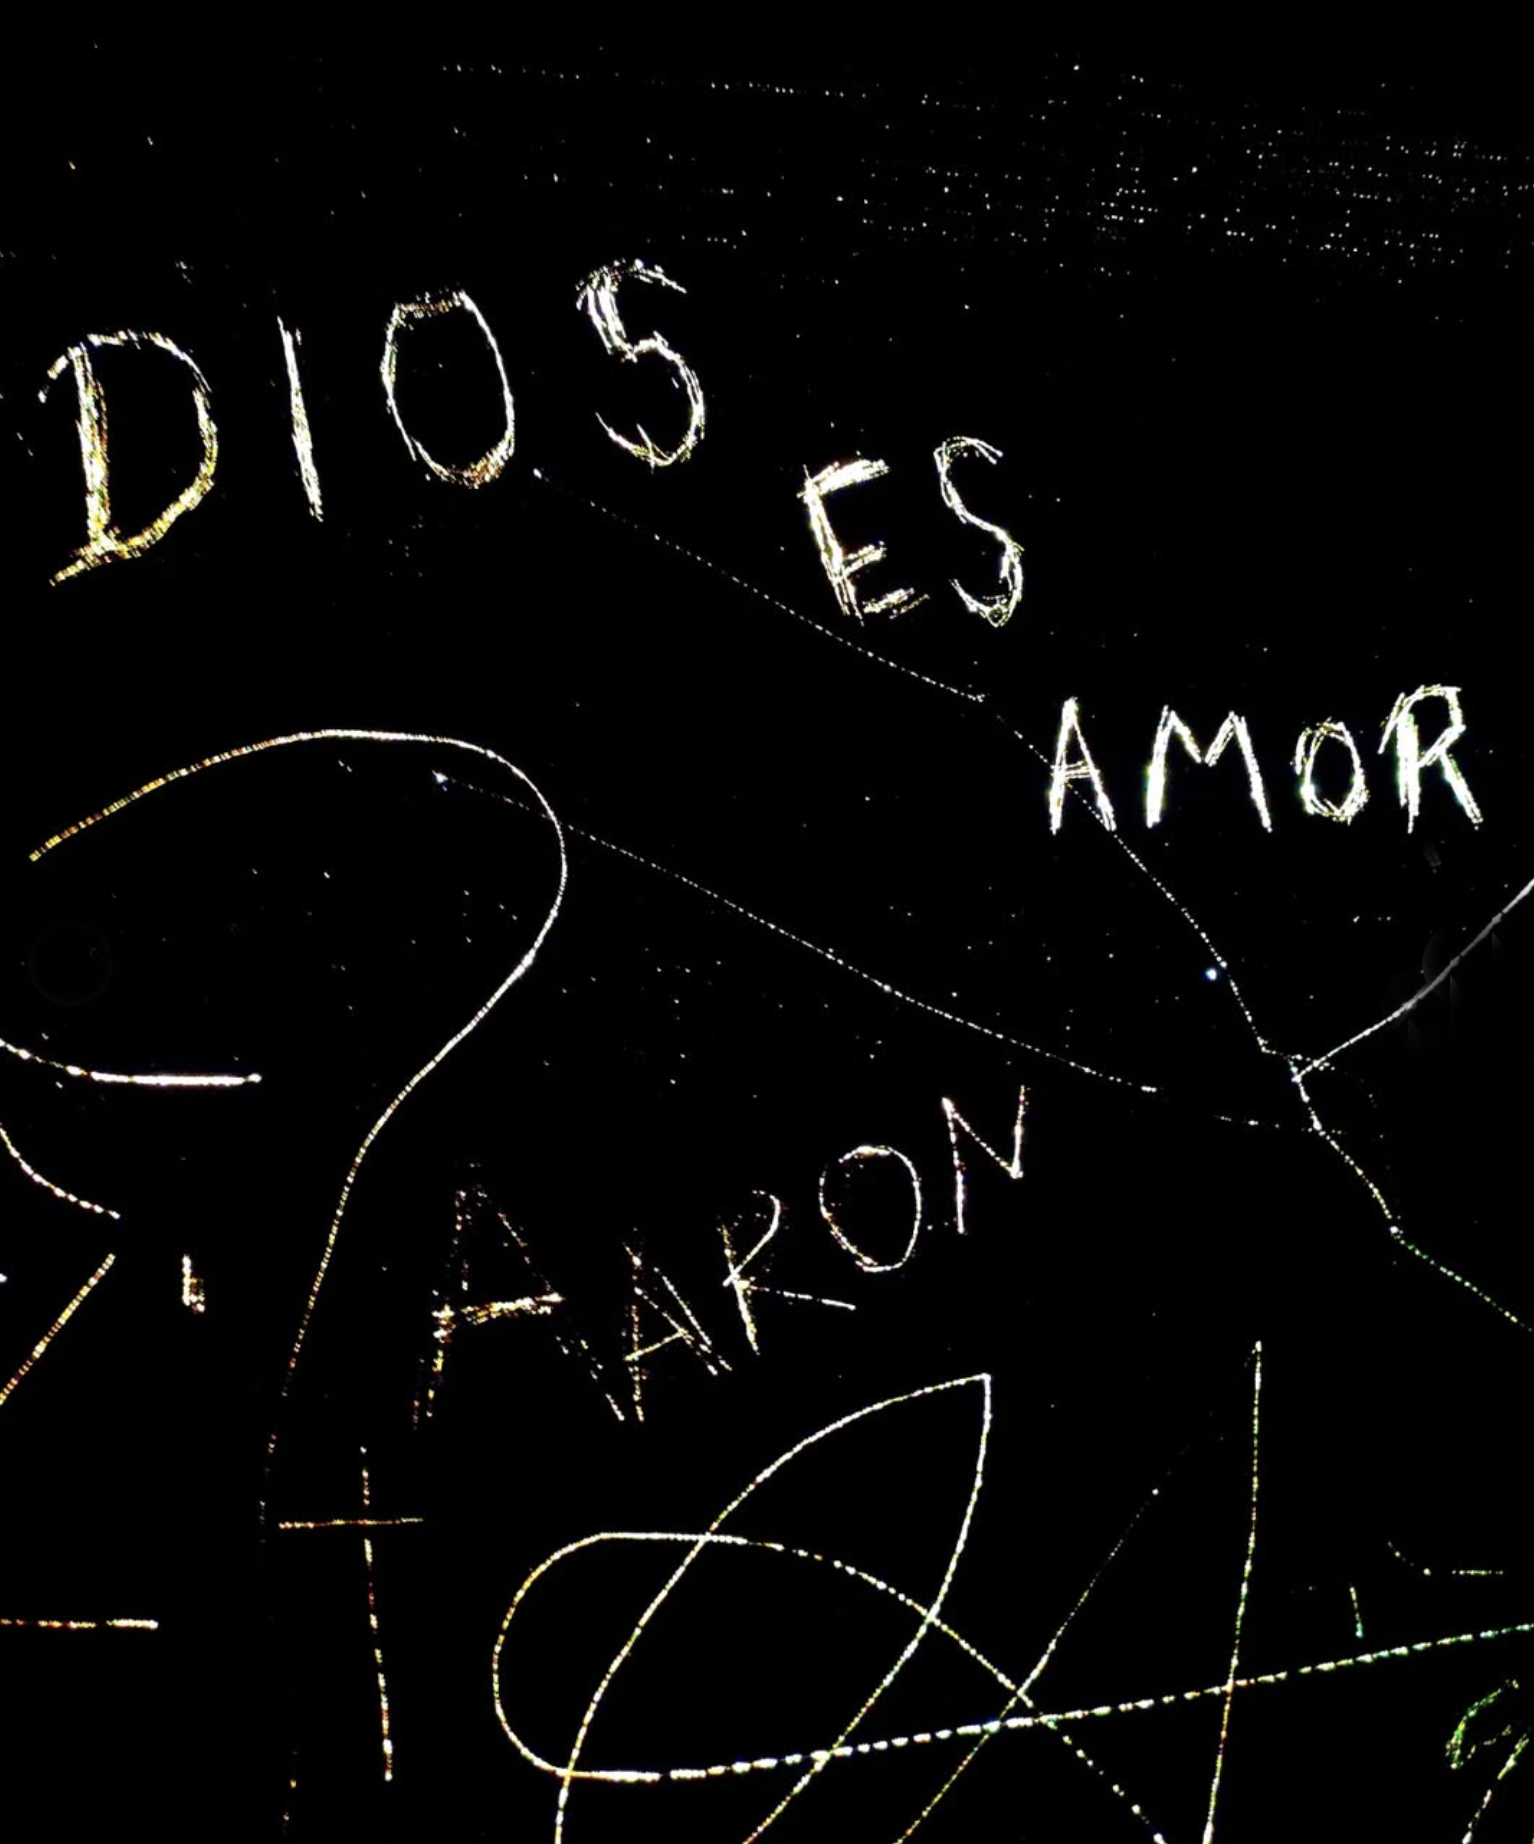 DIOS
ES
AMOR
AARON